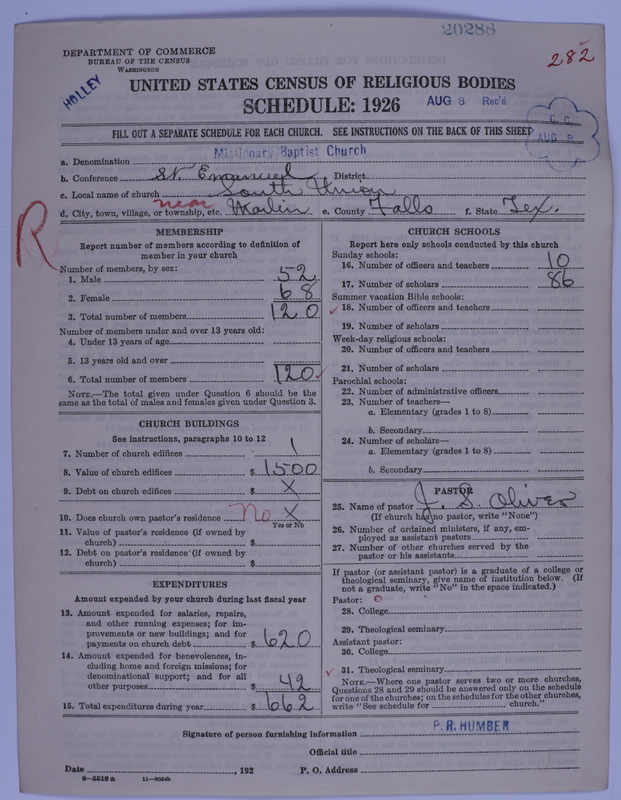 20286
282
DEPARTMENT OF COMMERCE
BUREAU OF THE CENSUS
WASHINGTON
HOLLEY
UNITED STATES CENSUS OF RELIGIOUS BODIES
SCHEDULE: 1926 AUG 8 Rec'd
FILL OUT A SEPARATE SCHEDULE FOR EACH CHURCH. SEE INSTRUCTIONS ON THE BACK OF THIS SHEET
AUG 8
a. Denomination Missionary Baptist Church
b. Conference St. Emanuel District
c. Local name of church South Union
d. City, town, village, or township, etc. near Marlin e. County Falls f. State Tex.
R
MEMBERSHIP
Report number of members according to definition of
member in your church
Number of members, by sex:
1. Male 52
2. Female 68
3. Total number of members 120
Number of members under and over 13 years old:
4. Under 13 years of age
5. 13 years old and over
6. Total number of members 120
NOTE.—The total given under Question 6 should be
same as the total of males and females given under Question 3.
CHURCH BUILDINGS
See instructions, paragraphs 10 to 12
7. Number of church edifices 1
8. Value of church edifices $ 1500
9. Debt on church edifices $ X
10. Does church own pastor's residence No X
Yes or No
11. Value of pastor's residence (if owned by
church) $
12. Debt on pastor's residence (if owned by
church) $
EXPENDITURES
Amount expended by your church during last fiscal year
13. Amount expended for salaries, repairs,
and other running expenses; for im-
provements or new buildings; and for
payments on church debt $ 620
14. Amount expended for benevolences, in-
cluding home and foreign missions; for
denominational support; and for all
other purposes $ 42
15. Total expenditures during year $ 662
CHURCH SCHOOLS
Report here only schools conducted by this church
Sunday schools:
16. Number of officers and teachers 10
17. Number of scholars 86
Summer vacation Bible schools:
18. Number of officers and teachers
19. Number of scholars
Week-day religious schools:
20. Number of officers and teachers
21. Number of scholars
Parochial schools:
22. Number of administrative officers
23. Number of teachers—
a. Elementary (grades 1 to 8)
b. Secondary
24. Number of scholars—
a. Elementary (grades 1 to 8)
b. Secondary
PASTOR
25. Name of pastor J. S. Oliver
(If church has no pastor, write "None")
26. Number of ordained ministers, if any, em-
ployed as assistant pastors
27. Number of other churches served by the
pastor or his assistants
If pastor (or assistant pastor) is a graduate of a college or
theological seminary, give name of institution below. (If
not a graduate, write "No" in the space indicated.)
Pastor: 0
28. College
29. Theological seminary
Assistant pastor:
30. College
31. Theological seminary
NOTE.—Where one pastor serves two or more churches,
Questions 28 and 29 should be answered only on the schedule
for one of the churches; on the schedules for the other churches,
write "See schedule for church."
Signature of person furnishing information P. R. HUMBER
Official title
Date , 192 P. O. Address
8—5518 a